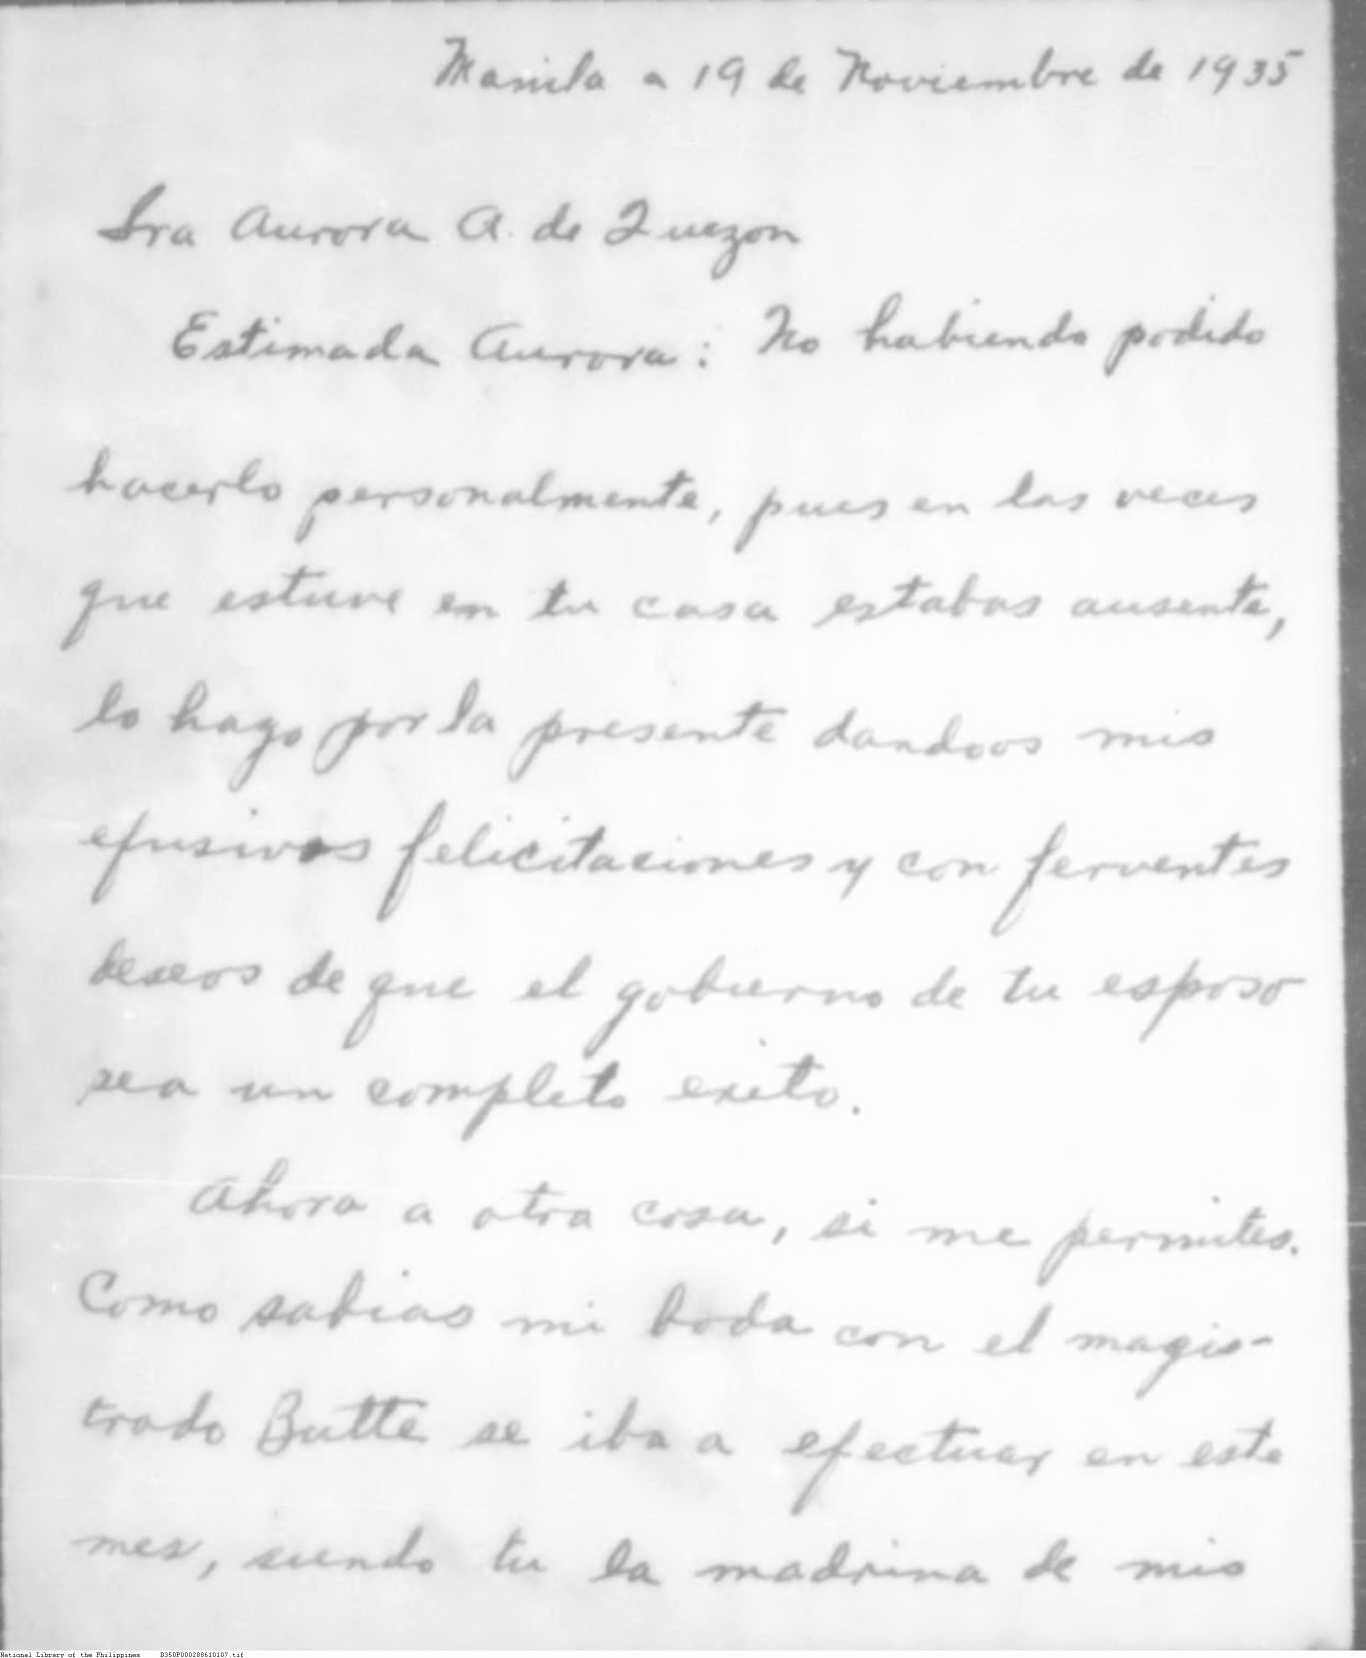 Manila a 19 de Noviembre de 1935
Sra Aurora A. de Quezon
Estimada Aurora: No habiendo podido
hacerlo personalmente, pues en las veces
que estuve en tu casa estabas ausente,
lo hago por la presente dandoos mis
efusivas felicitaciones y con ferventes
deseos de que el gobierno de tu esposo
sea un completo exito.
Ahora a otra cosa, si me permites.
Como sabias mi boda con el magis-
trado Butte se iba a efectuar en este
mes, siendo tu la madrina de mis
National Library of the Philippines B350P000288610107.tif